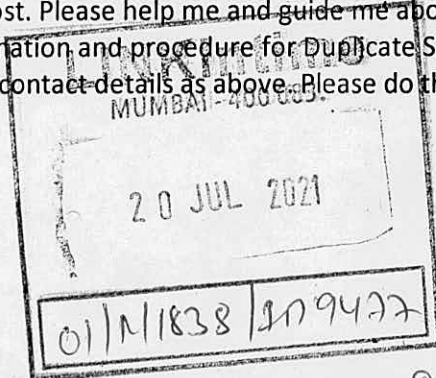 ost. Please help me and guide me abo
nation and procedure for Duplicate S
contact details as above. Please do th
MUMBAI-400 083.
20 JUL 2021
01/N/1838